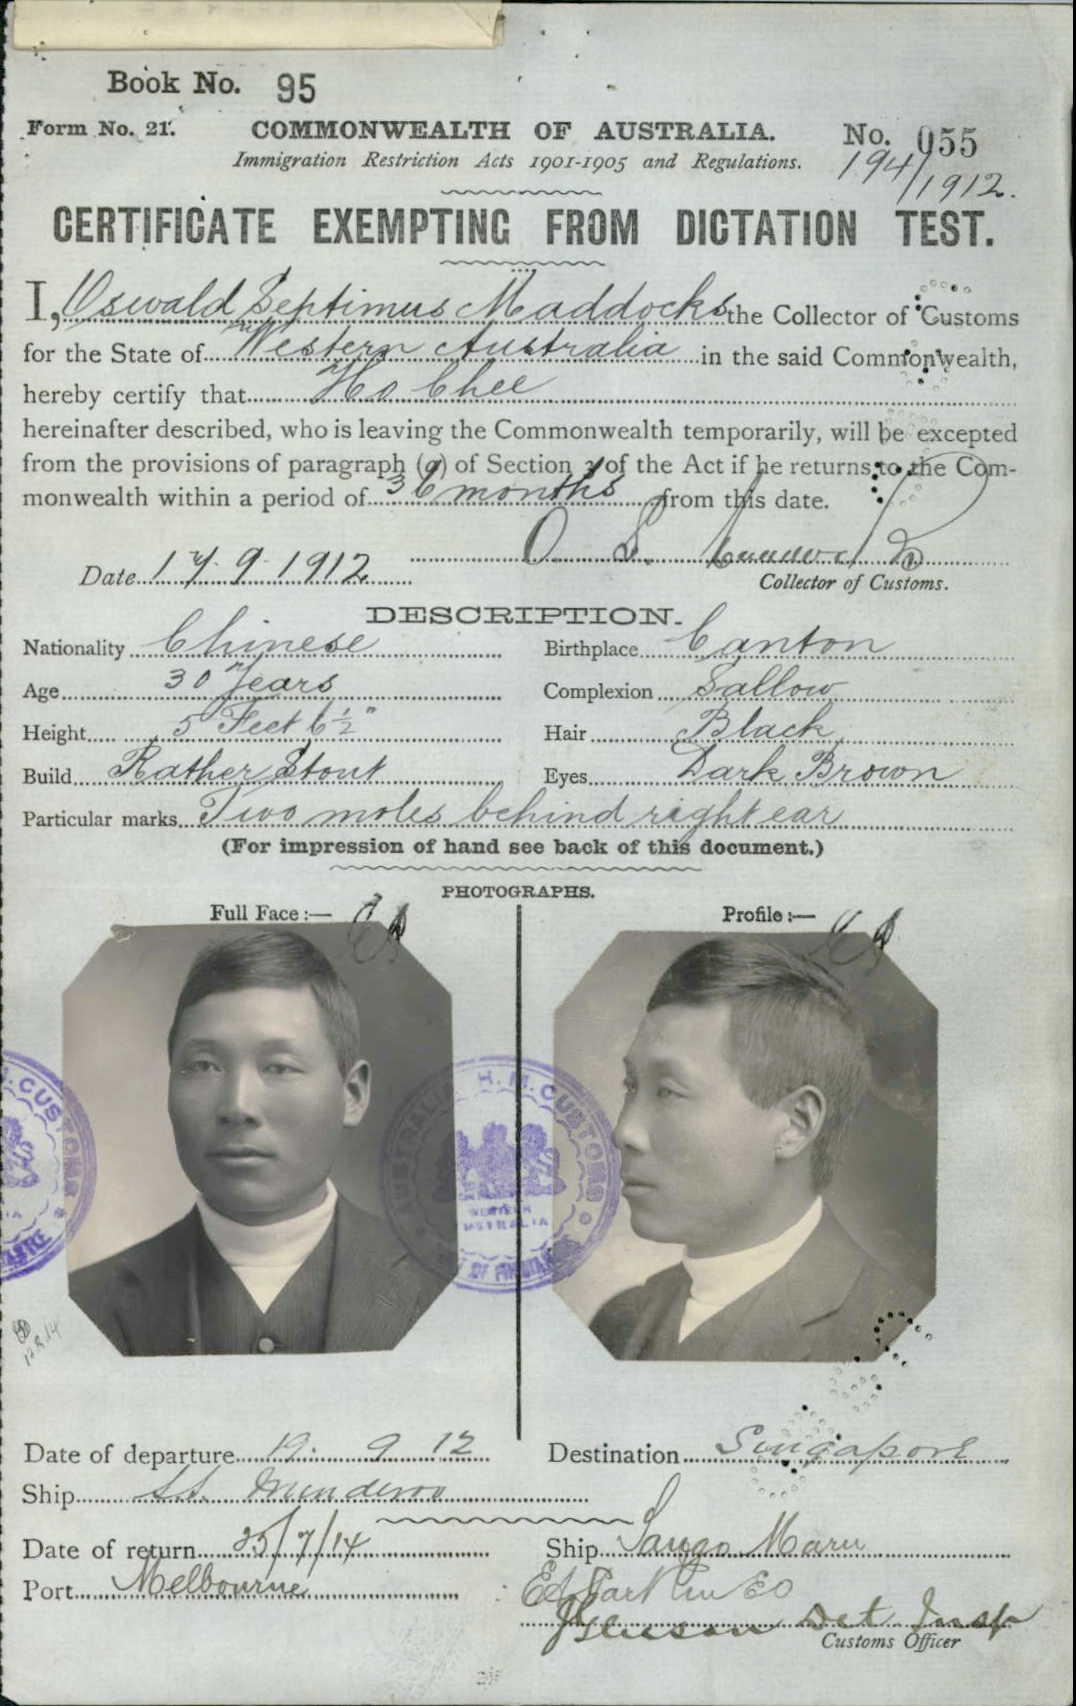 Book No. 95
Form No. 21. COMMONWEALTH OF AUSTRALIA. No. 055
Immigration Restriction Acts 1901-1905 and Regulations. 194/1912.
CERTIFICATE EXEMPTING FROM DICTATION TEST.
I, Oswald Septimus Maddocks the Collector of Customs
for the State of Western Australia in the said Commonwealth,
hereby certify that Ho Chee
hereinafter described, who is leaving the Commonwealth temporarily, will be excepted
from the provisions of paragraph (a) of Section 3 of the Act if he returns to the Com-
monwealth within a period of 36 months from this date.
O S Maddocks
Date 17. 9. 1912 Collector of Customs.
DESCRIPTION.
Nationality Chinese Birthplace Canton
Age 30 Years Complexion Sallow
Height 5 Feet 6 ½" Hair Black
Build Rather Stout Eyes Dark Brown
Particular marks Two moles behind right ear
(For impression of hand see back of this document.)
PHOTOGRAPHS.
Full Face :— Profile :—
H. M. CUSTOMS
AUSTRALIA
WESTERN
AUSTRALIA
12.8.14
Date of departure 19. 9 12 Destination Singapore
Ship S.S. Minderoo
Date of return 25/7/14 Ship Sango Maru
Port Melbourne
Gleeson Det Insp
Customs Officer